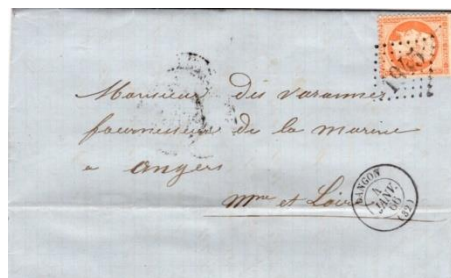 1945
Monsieur des varannes
fournisseur de la marine
a angers
Mne et Loire
LANGON
A
JANV.
66
(32)